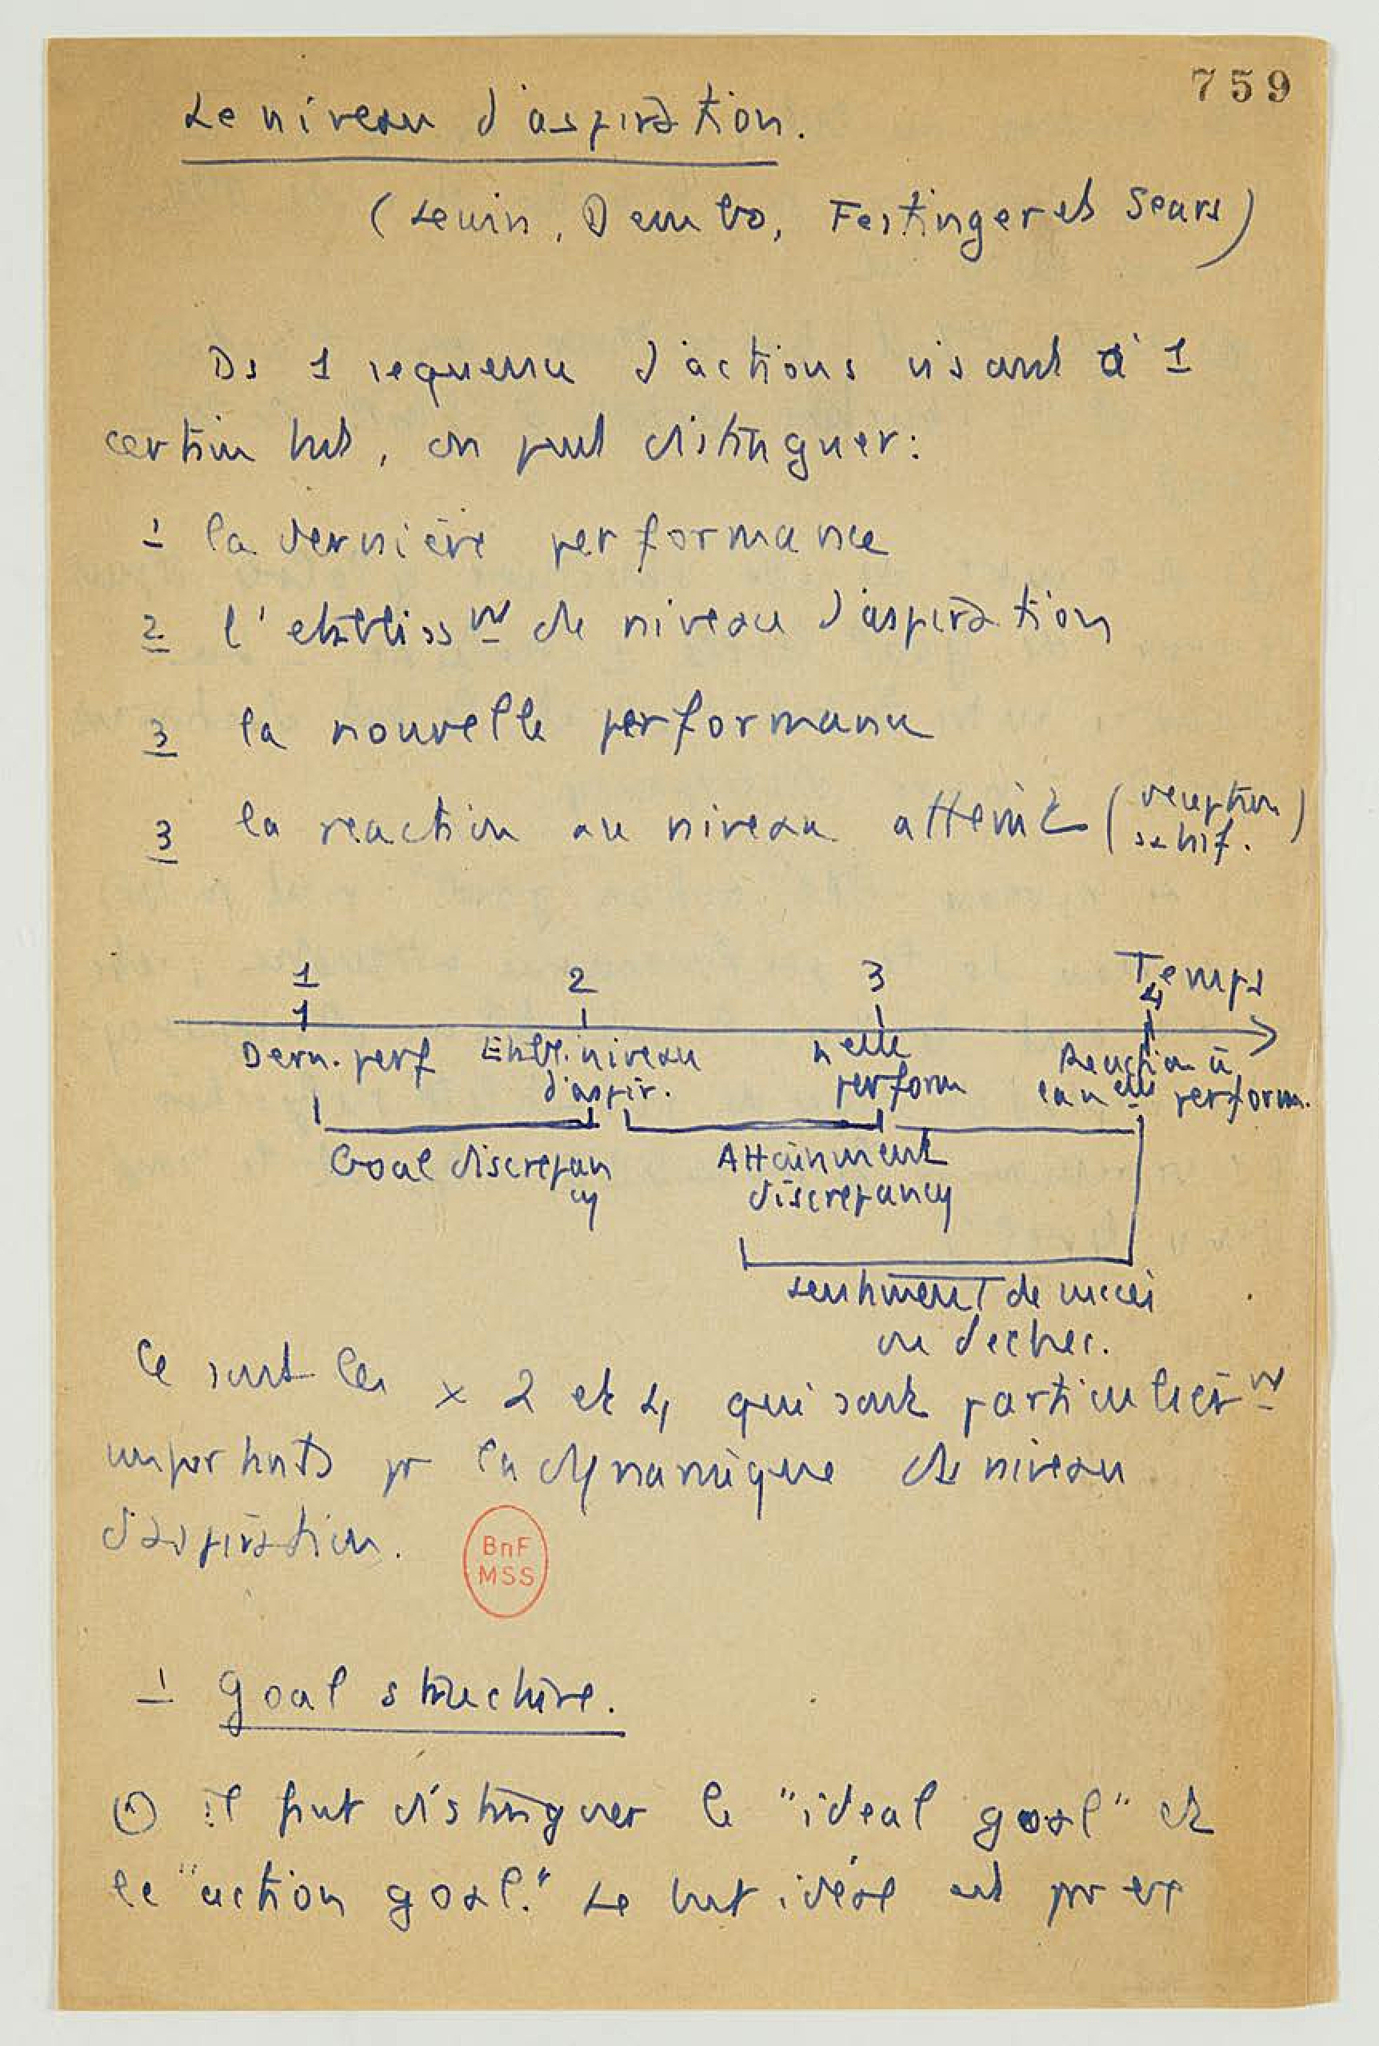 759
Le niveau d'aspiration.
(Lewin, Dembo, Festinger et Sears)
Ds 1 sequence d'actions visant à 1
certain but, on peut distinguer:
1 la dernière performance
2 l'etablissmt de niveau d'aspiration
3 la nouvelle performance
3 la reaction au niveau atteint (deception
satisf.)
1 2 3 Temps
1 4
Dern. perf Etabl. niveau nelle Reaction à
d'aspir. perform la nelle perform.
Goal discrepan Attainment
cy discrepancy
sentiment de succès
ou d'echec.
Ce sont les x 2 et 4 qui sont particulièrmt
importants pr la dynamique de niveau
d'aspiration.
BnF
MSS
1 Goal structure.
① il faut distinguer le "ideal goal" et
le "action goal." Le but idéal est pr ex